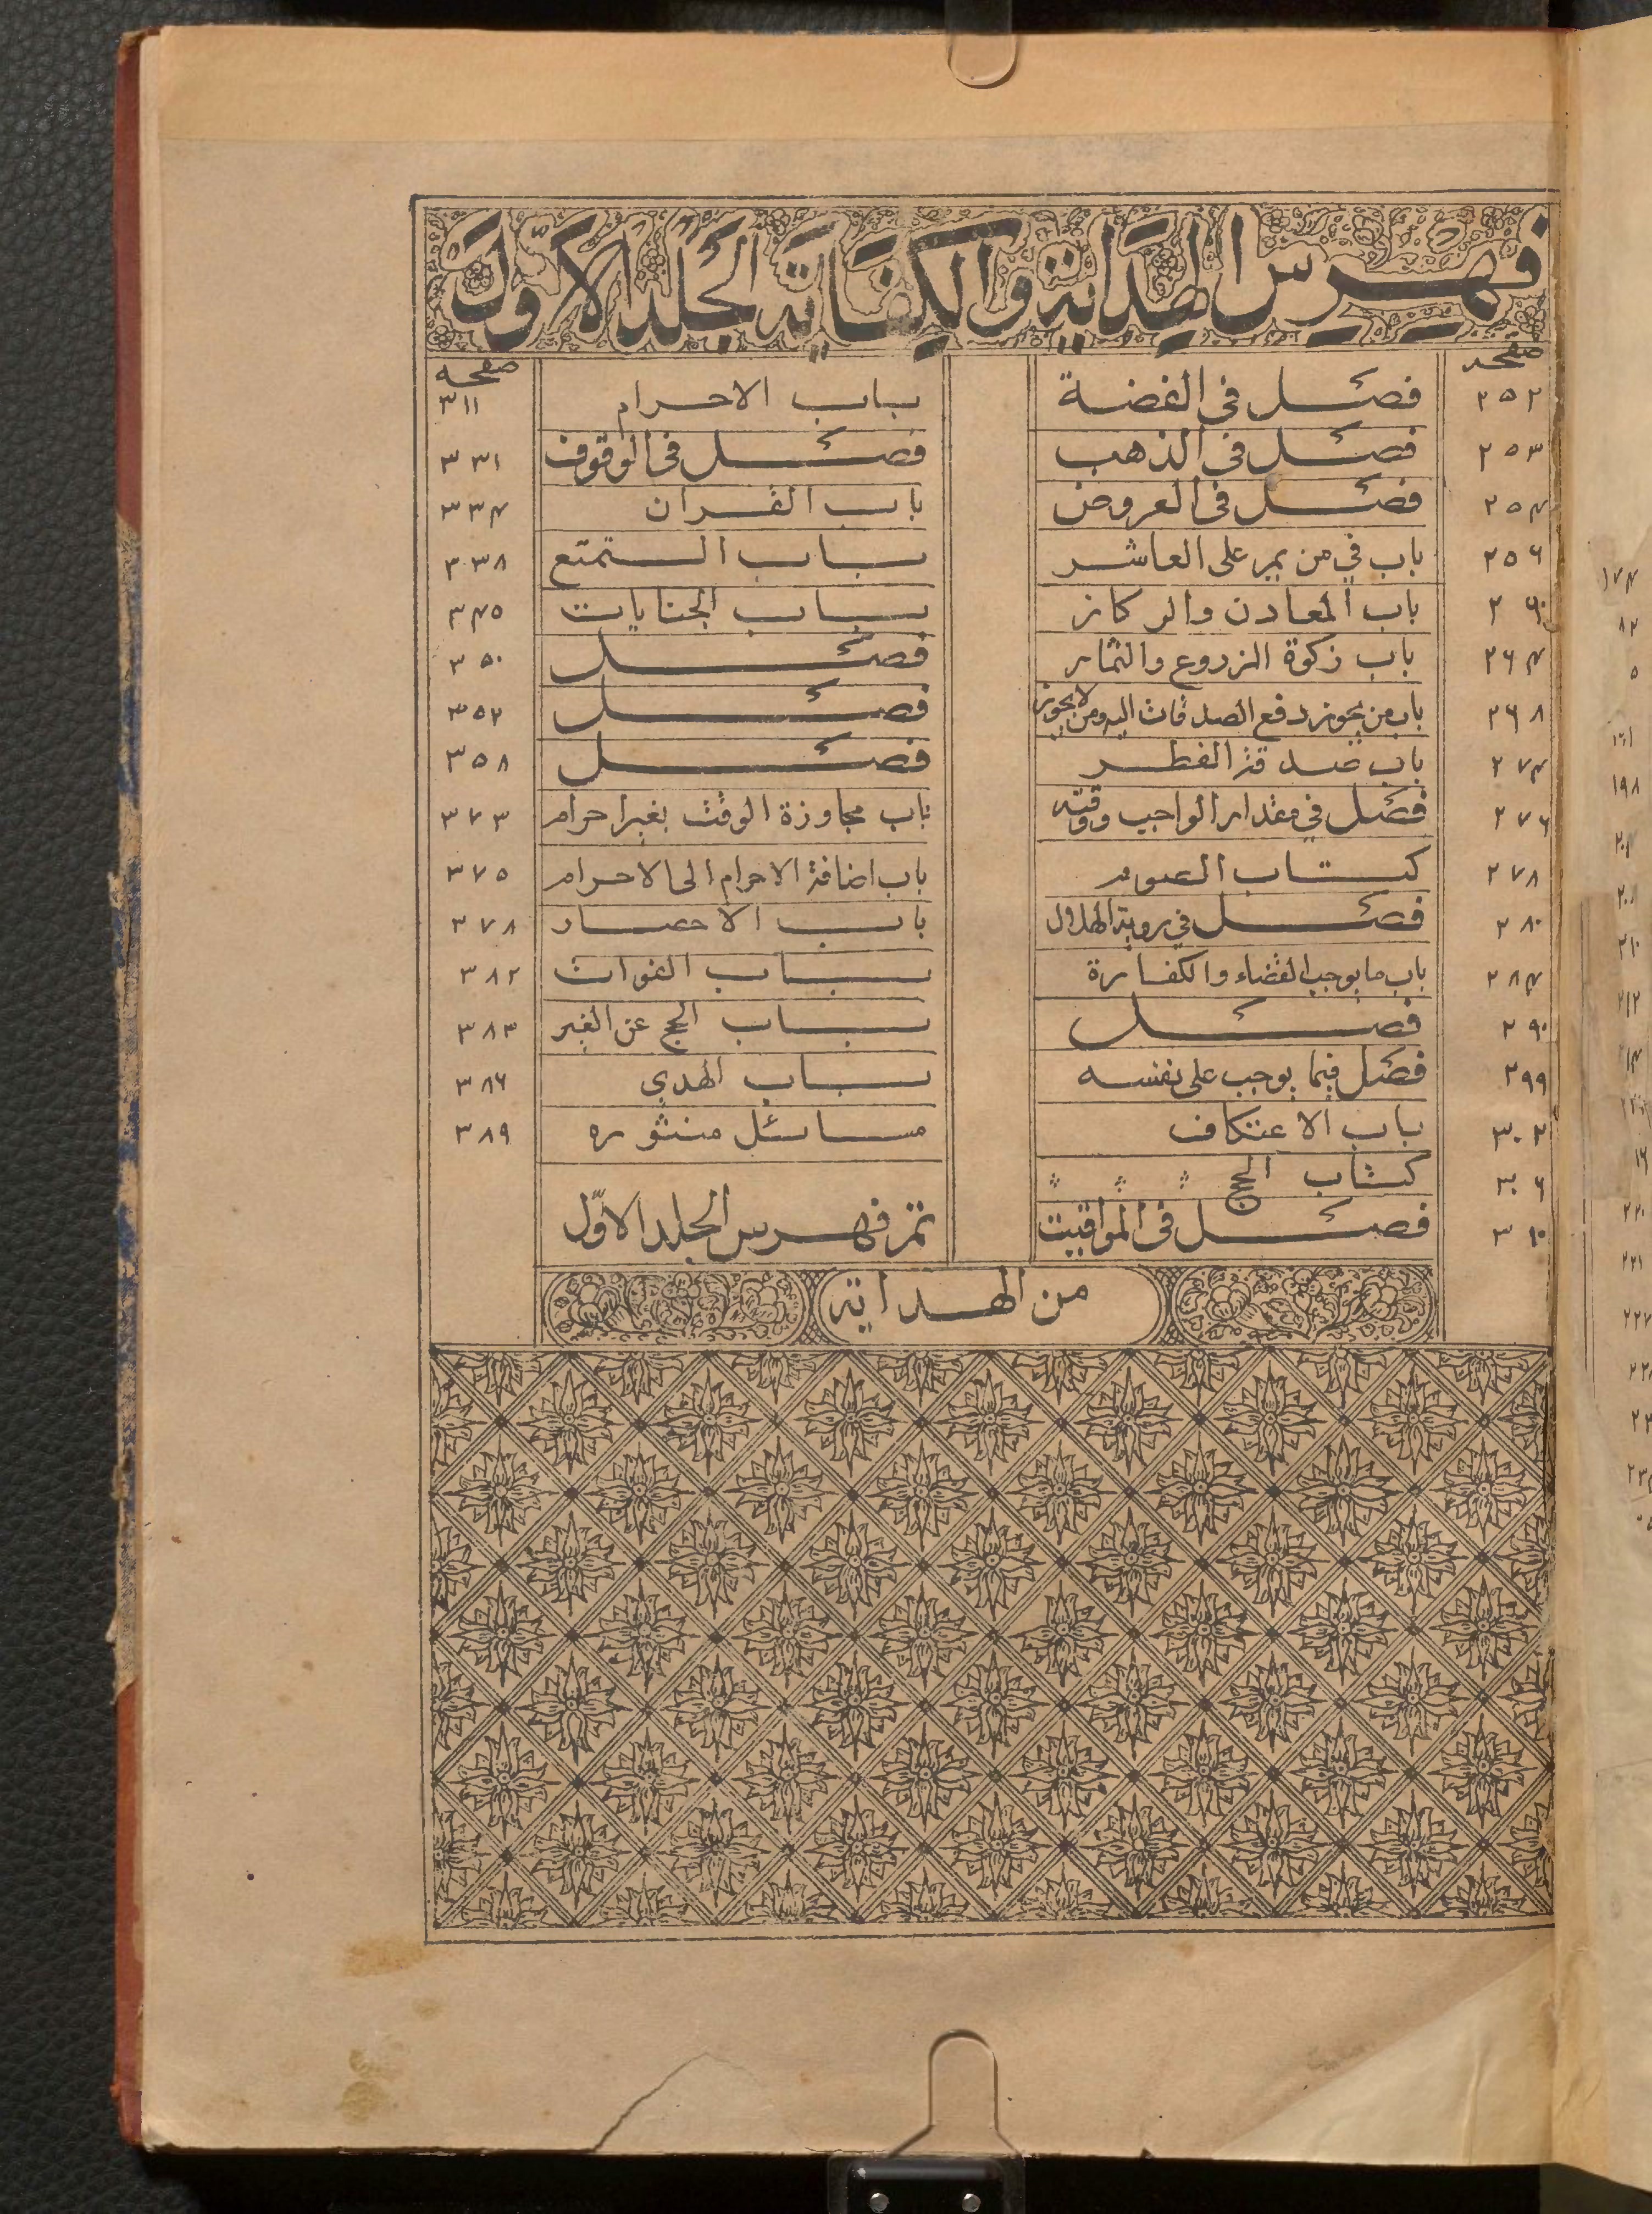 فهرس الهداية والكفاية الجلد الاوّل
صفحه
فصل فى الفضة ٢٥٢
فصل فى الذهب ٢٥٣
فصل فى العروض ٢٥٤
باب في من يمر على العاشر ٢٥٦
باب المعادن والركاز ٢٦٠
باب زكوة الزروع والثمار ٢٦٤
باب من يجوز دفع الصدقات اليه ومن لا يجوز ٢٦٨
باب صدقة الفطر ٢٧٤
فصل في مقدار الواجب ووقته ٢٧٦
كتاب الصوم ٢٧٨
فصل في روية الهلال ٢٨٠
باب ما يوجب القضاء والكفارة ٢٨٤
فصل ٢٩٠
فصل فيما يوجب على نفسه ٢٩٩
باب الاعتكاف ٣٠٢
كتاب الحج ٣٠٦
فصل فى المواقيت ٣١٠
صفحه
باب الاحرام ٣١١
فصل فى الوقوف ٣٣١
باب القران ٣٣٤
باب التمتع ٣٣٨
باب الجنايات ٣٤٥
فصل ٣٥٠
فصل ٣٥٢
فصل ٣٥٨
باب مجاوزة الوقت بغير احرام ٣٧٣
باب اضافة الاحرام الى الاحرام ٣٧٥
باب الاحصار ٣٧٨
باب الفوات ٣٨٢
باب الحج عن الغير ٣٨٣
باب الهدي ٣٨٦
مسائل منثوره ٣٨٩
تم فهرس الجلد الاوّل
من الهداية